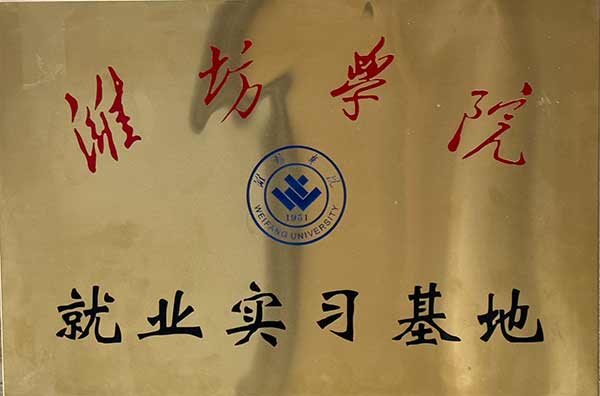 潍坊学院
潍坊学院
1951
WEIFANG UNIVERSITY
就业实习基地